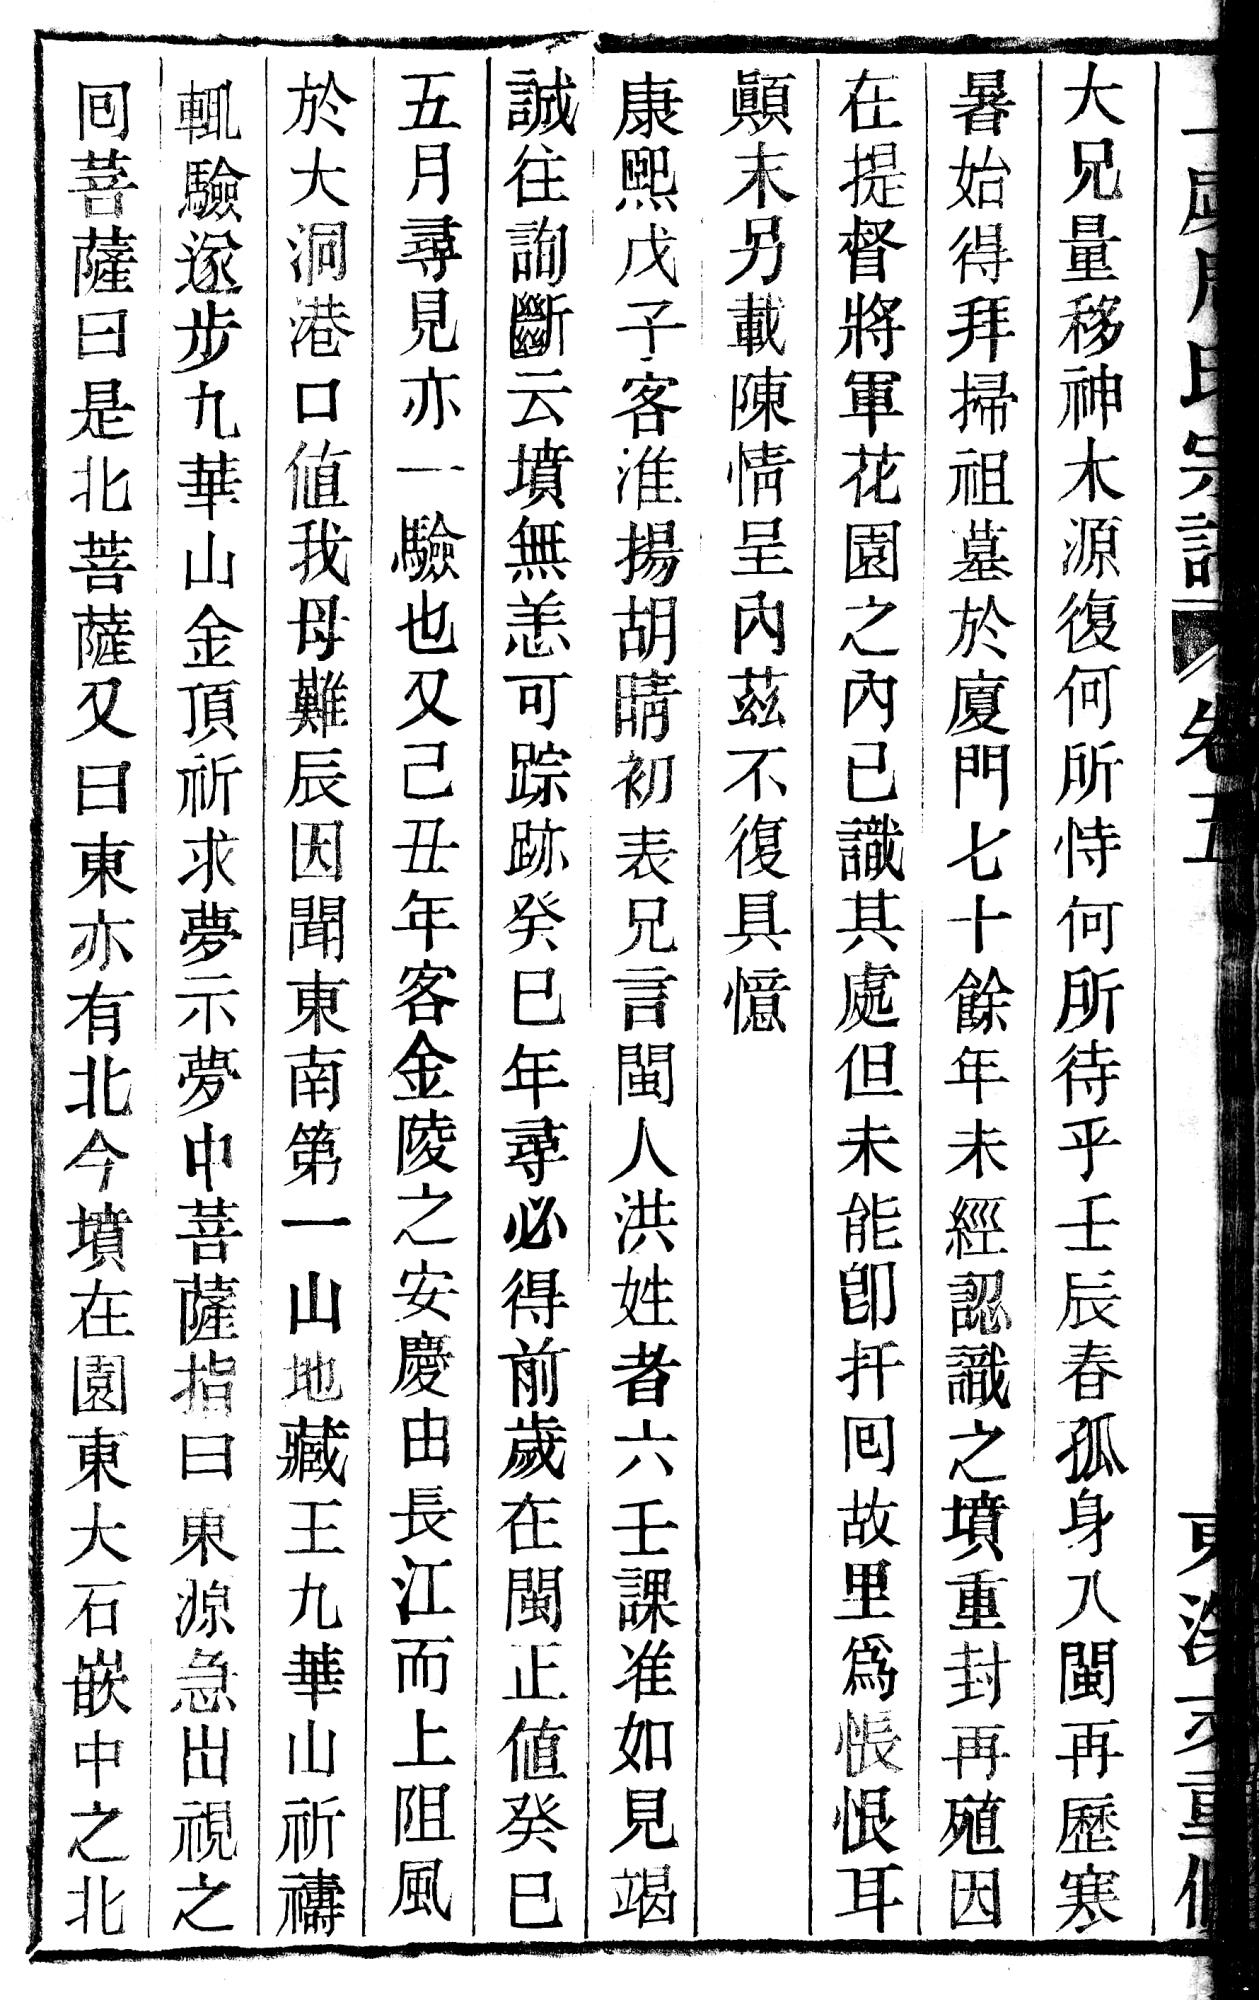 周氏宗譜 卷五 重修
大兄量移神木源復何所恃何所待乎壬辰春孤身入閩再歷寒
暑始得拜掃祖墓於廈門七十餘年未經認識之墳重封再殖因
在提督將軍花園之內已識其處但未能卽扦囘故里爲悵恨耳
顚末另載陳情呈內茲不復具憶
康熙戊子客淮揚胡晴初表兄言閩人洪姓者六壬課准如見竭
誠往詢斷云墳無恙可踪跡癸巳年尋必得前歲在閩正值癸巳
五月尋見亦一驗也又己丑年客金陵之安慶由長江而上阻風
於大洞港口値我母難辰因聞東南第一山地藏王九華山祈禱
輒驗遂步九華山金頂祈求夢示夢中菩薩指曰東源急出視之
囘菩薩曰是北菩薩又曰東亦有北今墳在園東大石嵌中之北